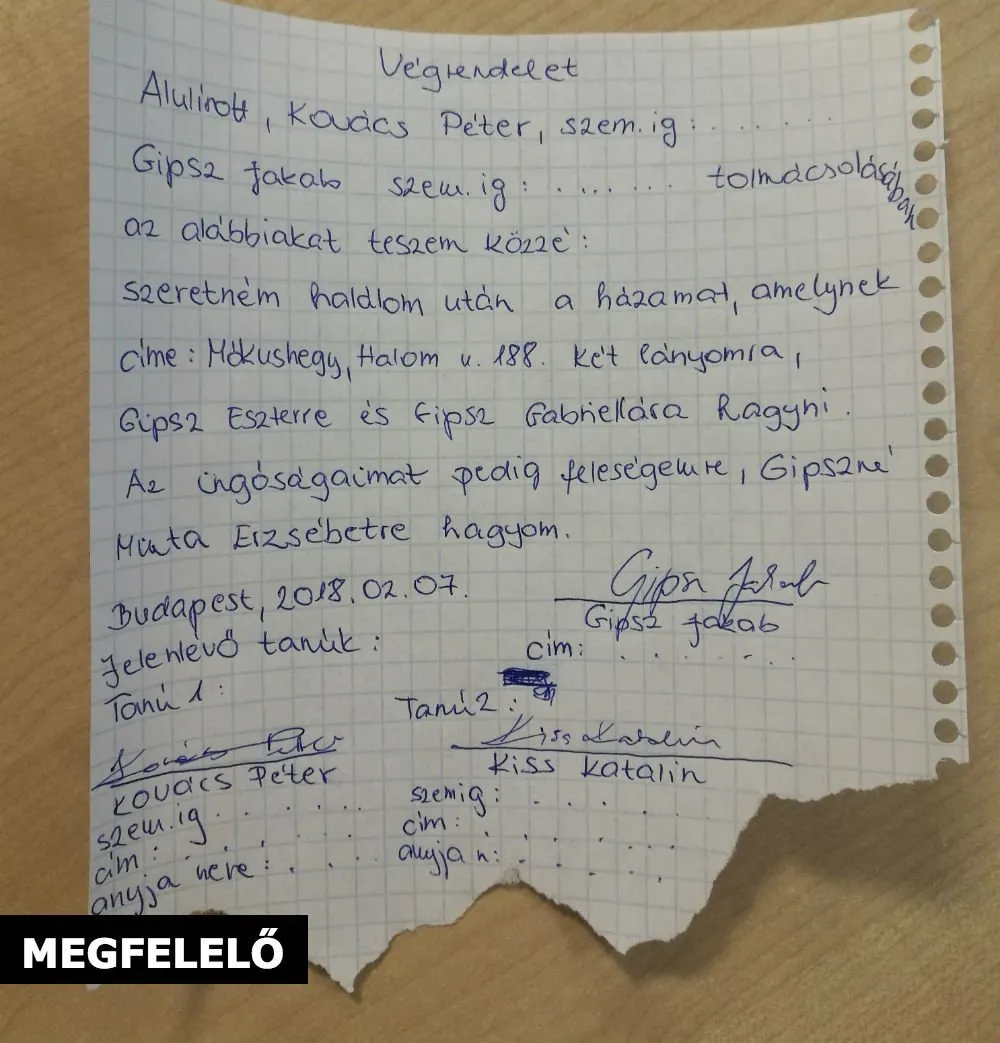 Végrendelet
Alulírott, Kovács Péter, szem.ig: . . . . . .
Gipsz Jakab szem.ig: . . . . . . . tolmácsolásában
az alábbiakat teszem közzé:
szeretném halálom után a házamat, amelynek
címe: Mókushegy, Halom u. 188. két lányomra,
Gipsz Eszterre és Gipsz Gabriellára hagyni.
Az ingóságaimat pedig feleségemre, Gipszné
Minta Erzsébetre hagyom.
Budapest, 2018.02.07.
Gipsz Jakab
Gipsz Jakab
cím: . . . . . .
Jelenlévő tanúk:
Tanú 1:
Tanú 2:
Kovács Péter
Kiss Katalin
Kovács Péter
Kiss Katalin
szem.ig . . . . .
szemig: . . . . .
cím: . . . . .
cím: . . . . .
anyja neve: . . . .
anyja n: . . . . .
MEGFELELŐ